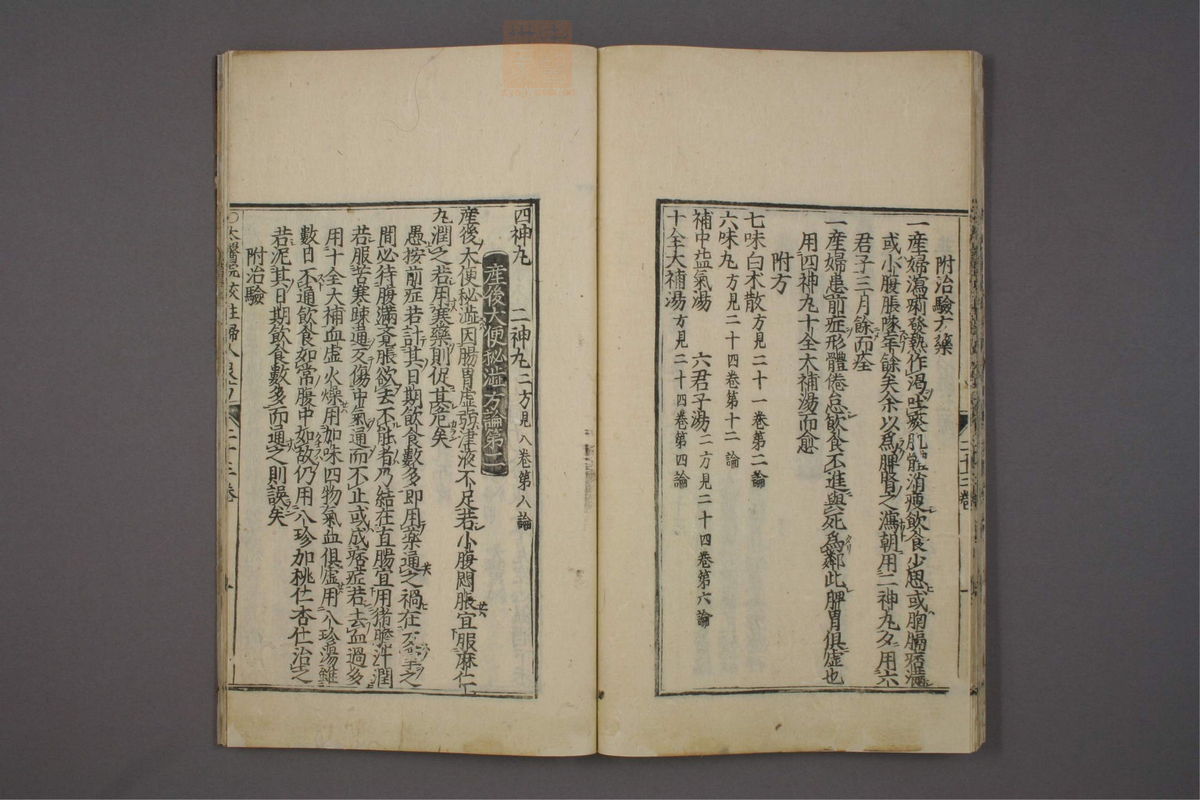 附治驗方藥
一産婦瀉痢發熱作渇吐痰肌體消瘦飲食少思或胸膈痞滿
或小腹脹墜年餘矣余以爲脾腎之瀉朝用二神丸夕用六
君子三月餘而痊
一産婦患前症形體倦怠飲食不進與死爲鄰此脾胃俱虚也
用四神丸十全大補湯而愈
附方
七味白朮散方見二十一卷第二論
六味丸方見二十四卷第十二論
補中益氣湯 六君子湯二方見二十四卷第六論
十全大補湯方見二十四卷第四論
二十三卷
四神丸 二神丸二方見八卷第八論
産後大便秘澁方論第二
産後大便秘澁因腸胃虚弱津液不足若小腹悶脹宜服麻仁
丸潤之若用寒藥則促其危矣
愚按前症若計其日期飲食數多即用藥通之禍在反掌之
間必待腹滿覺脹欲去不能者乃結在直腸宜用猪膽汁潤
若服苦寒疎通反傷中氣通而不止或成痞症若去血過多
用十全大補血虚火燥用加味四物氣血俱虚用八珍湯雖
數日不通飲食如常腹中如故仍用八珍加桃仁杏仁治之
若泥其日期飲食數多而通之則誤矣
附治驗
〇太醫院校註婦人良方 二十三卷